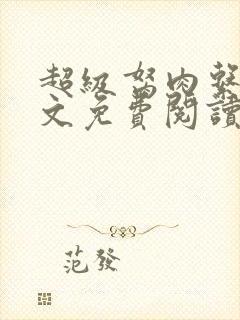 超級啓肉聲
文免費閱讀
范發